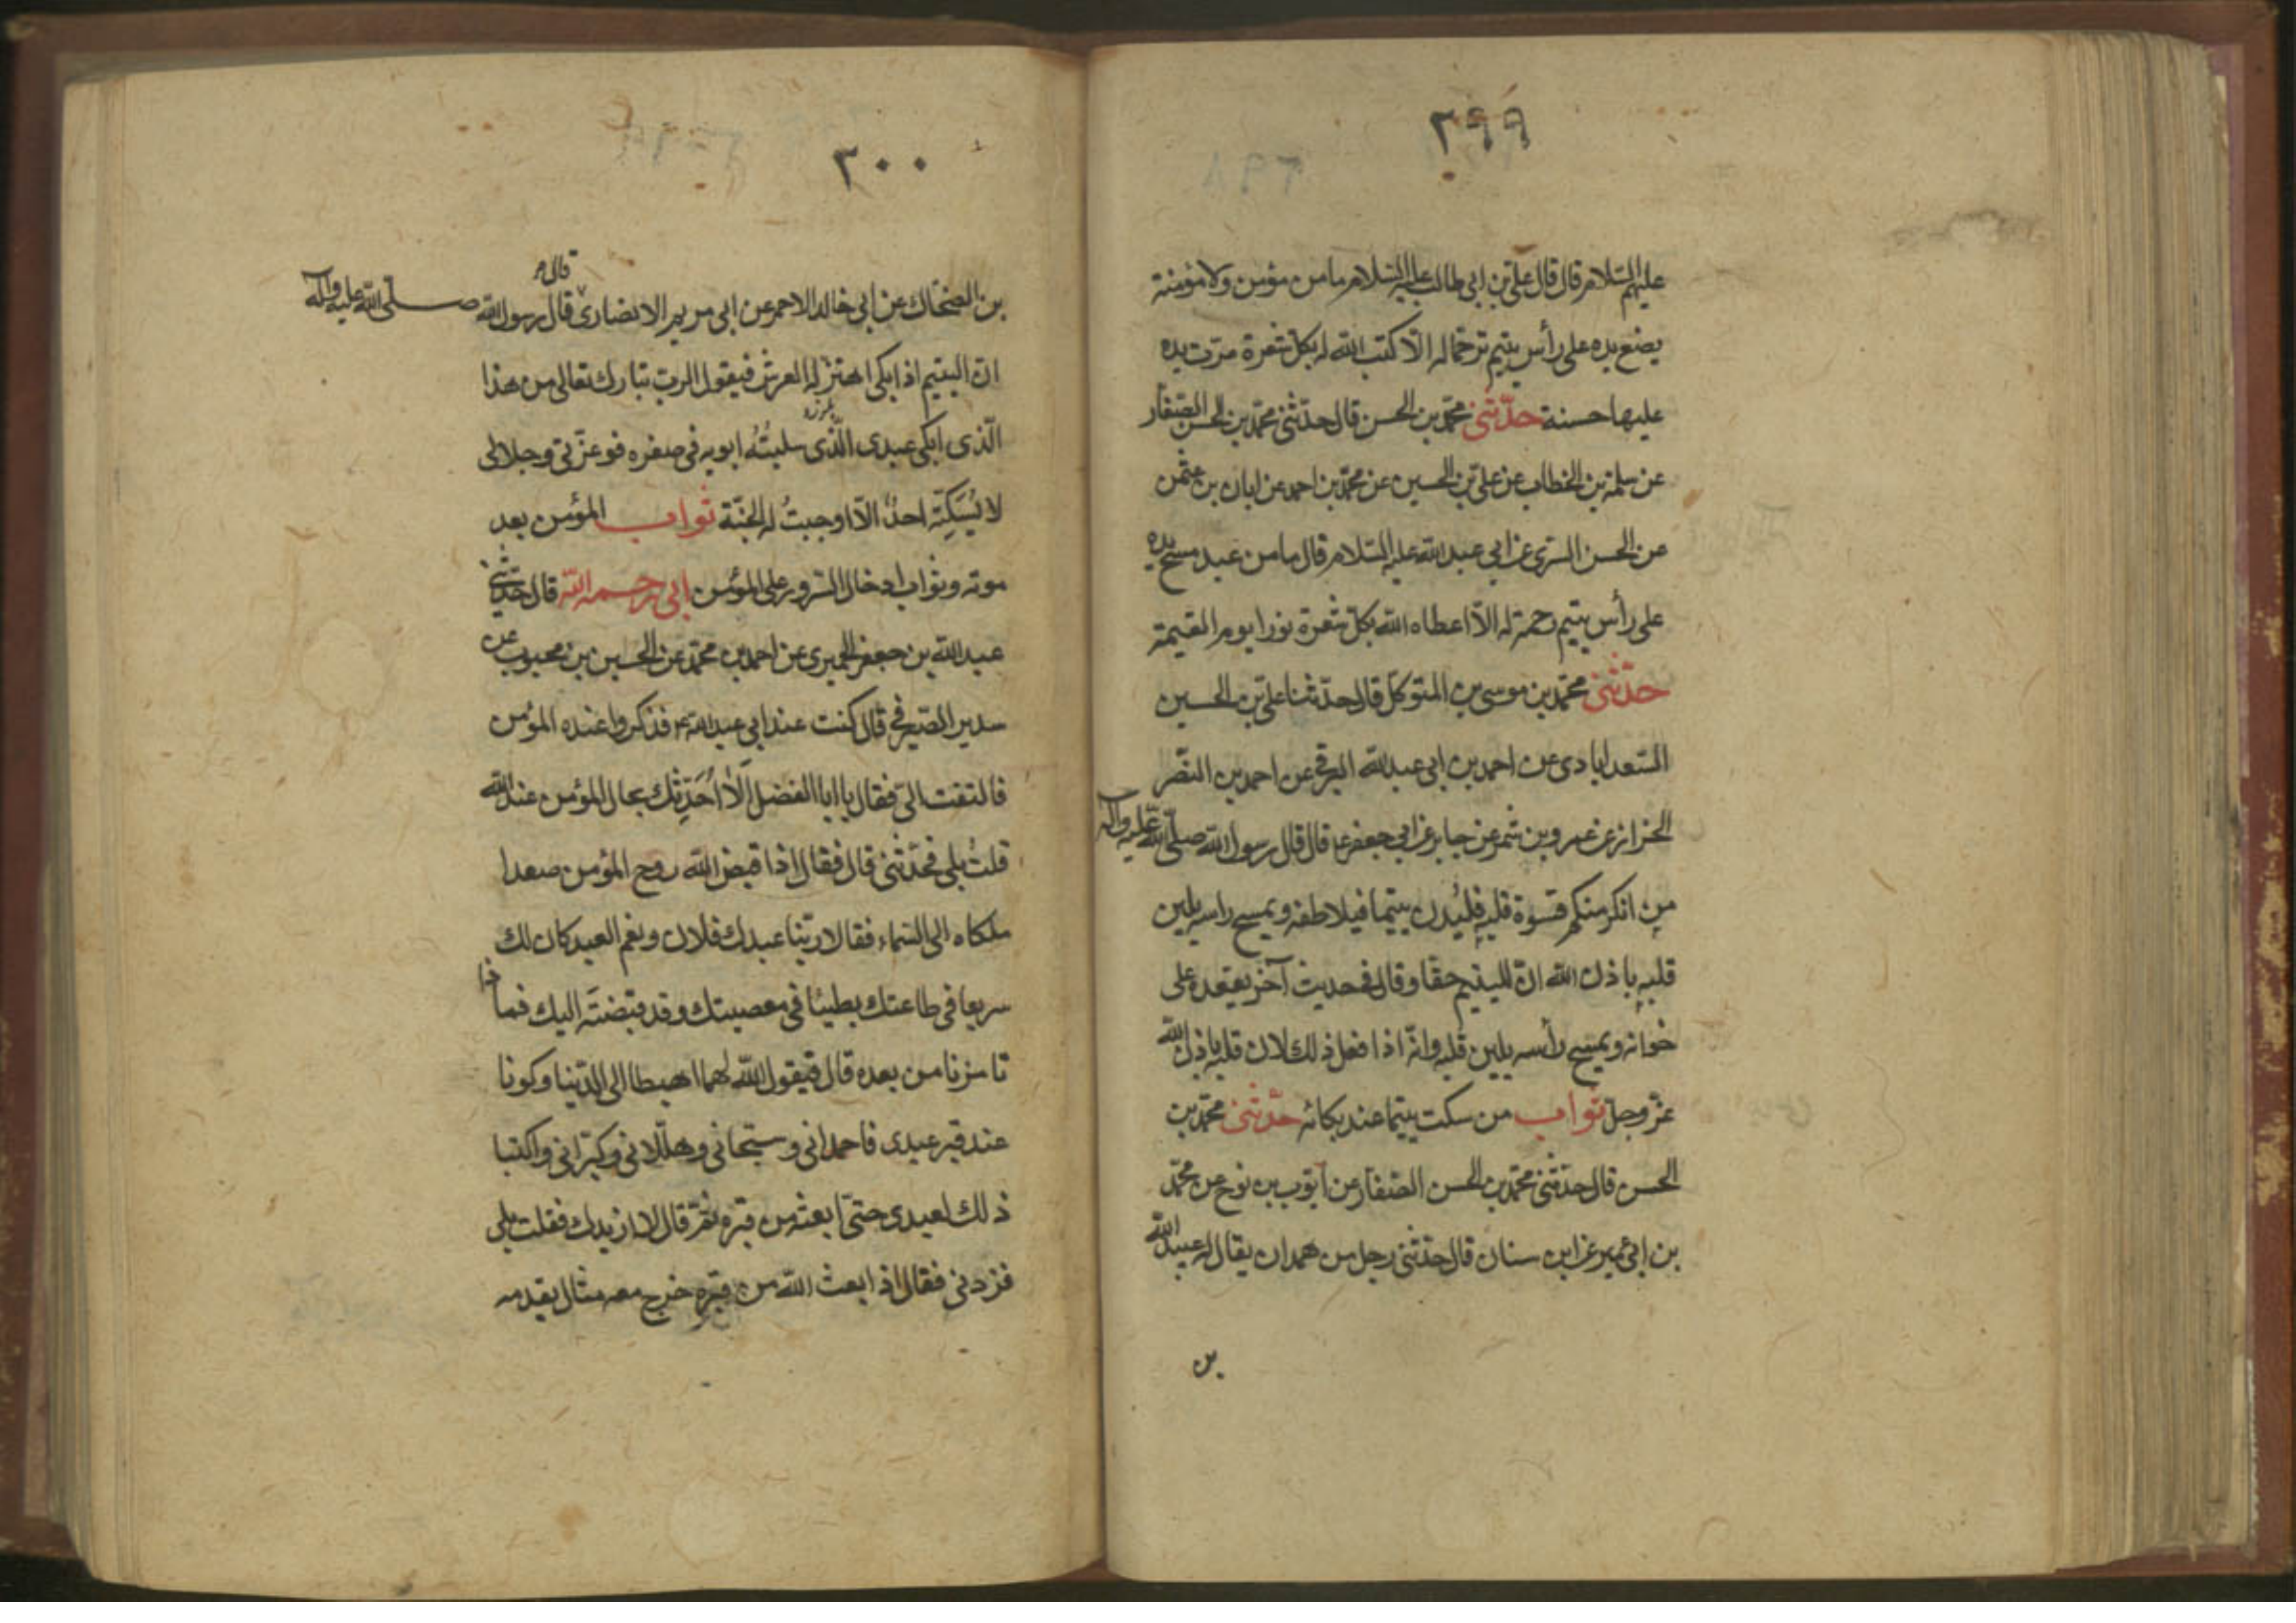 ٢٩٩
عليهم السلام قال قال علي بن ابي طالب عليه السلام ما من مؤمن ولا مؤمنة
يضع يده على رأس يتيم ترحّما له الّا كتب الله له بكل شعرة مرّت يده
عليها حسنة حدّثني محمّد بن الحسن قال حدّثني محمّد بن الحسن الصّفار
عن سلمة بن الخطاب عن علي بن الحسين عن محمّد بن احمد عن ابان بن عثمن
عن الحسن السري عن ابي عبد الله عليه السّلام قال ما من عبد مسح يده
على رأس يتيم رحمة له الّا اعطاه الله بكلّ شعرة نورا يوم القيمة
حدّثني محمّد بن موسى بن المتوكّل قال حدّثنا علي بن الحسين
السّعدابادي عن احمد بن ابي عبد الله البرقي عن احمد بن النّضر
الخزاز عن عمرو بن شمر عن جابر عن ابي جعفر ع قال قال رسول الله صلّى الله عليه وآله
من انكر منكم قسوة قلبه فليدن يتيما فيلاطفه ويمسح راسه يلين
قلبه باذن الله انّ لليتيم حقّا وقال في حديث آخر يقعده على
خوانه ويمسح رأسه يلين قلبه وانّه اذا فعل ذلك لان قلبه باذن الله
عزّ وجلّ ثواب من سكت يتيما عند بكائه حدّثني محمّد بن
الحسن قال حدّثني محمّد بن الحسن الصّفار عن ايّوب بن نوح عن محمّد
بن ابي عمير عن ابن سنان قال حدّثني رجل من همدان يقال له عبد الله
بن
٣٠٠
بن الضحّاك عن ابي خالد الاحمر عن ابي مريم الانصاري قال قال رسول الله صلّى الله عليه وآله
انّ اليتيم اذا بكى اهتزّ له العرش فيقول الربّ تبارك تعالى من هذا
الّذي ابكى عبدي الّذي سلبتُه ابويه في صغره فوعزّتي وجلالي
لا يُسَكِتّه احدٌ الّا اوجبتُ له الجنّة ثواب المؤمن بعد
موته وثواب ادخال السّرور على المؤمن ابي رحمه الله قال حدّثني
عبد الله بن جعفر الحميري عن احمد بن محمّد عن الحسين بن محبوب عن
سدير الصّيرفي قال كنت عند ابي عبد الله ع فذكروا عنده المؤمن
فالتفت اليّ فقال يا ابا الفضل اَلا اُحَدِّثك بحال المؤمن عند الله
قلتُ بلى فحدّثني قال فقال اذا قبض الله روح المؤمن صعدا
ملكاه الى السّماء فقالا ربّنا عبدك فلان ونعم العبد كان لك
سريعا في طاعتك بطيئا في معصيتك وقد قبضتَه اليك فما ذا
تامرنا من بعده قال فيقول الله لهما اهبطا الى الدّنيا وكونا
عند قبر عبدي فاحمداني وسبّحاني وهلّلاني وكبّراني واكتبا
ذلك لعبدي حتّى ابعثه من قبره ثمّ قال الا ازيدك فقلت بلى
فزدني فقال اذا بعث الله من قبره خرج معه مثال يقدمه